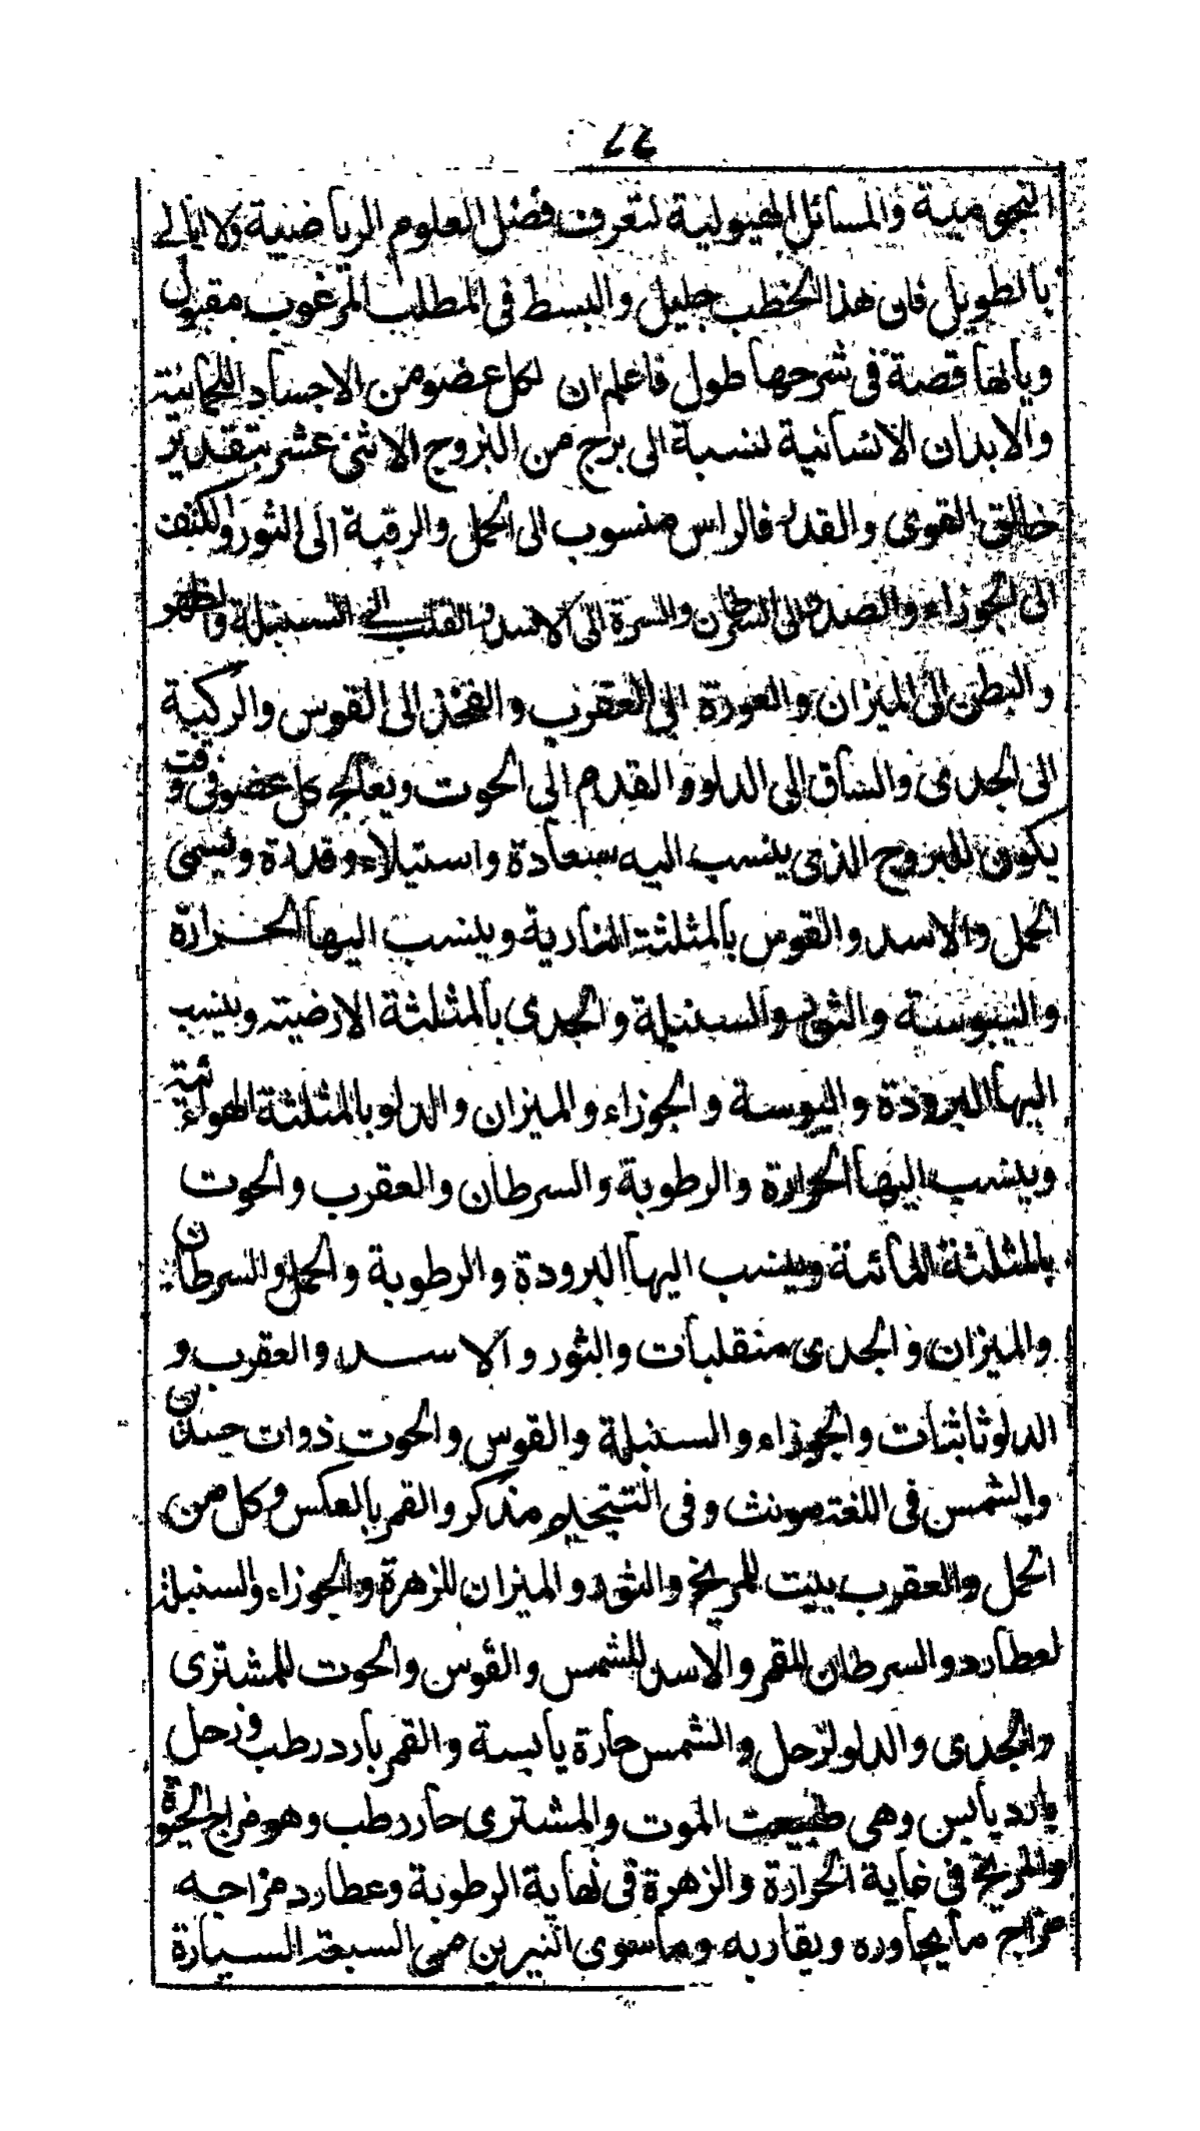 ٢٢
النجومية والمسائل الهيولية لتعرف فضل العلوم الرياضية ولا ابالى
بالطويل فان هذا الخطب جليل والبسط فى المطلب المرغوب مقبول
ويالها قصة فى شرحها طول فاعلم ان لكل عضو من الاجساد اللحمانية
والابدان الانسانية نسبة الى برج من البروج الاثنى عشر بتقدير
خالق القوى والقدر فالراس منسوب الى الحمل والرقبة الى الثور والكتف
الى الجوزاء والصدر الى السرطان والسرة الى الاسد والقلب الى السنبلة والظهر
والبطن الى الميزان والعورة الى العقرب والفخذ الى القوس والركبة
الى الجدى والساق الى الدلو والقدم الى الحوت ويعالج كل عضو فى وقت
يكون للبروج الذى ينسب اليه سعادة واستيلاء وقدرة وتسمى
الحمل والاسد والقوس بالمثلثة النارية وينسب اليها الحرارة
واليبوسة والثور والسنبلة والجدى بالمثلثة الارضية وينسب
اليها البرودة واليبوسة والجوزاء والميزان والدلو بالمثلثة الهوائية
وينسب اليها الحرارة والرطوبة والسرطان والعقرب والحوت
بالمثلثة المائية وينسب اليها البرودة والرطوبة والحمل والسرطان
والميزان والجدى منقلبات والثور والاسد والعقرب و
الدلو ثابتات والجوزاء والسنبلة والقوس والحوت ذوات جسدين
والشمس فى اللغة مونث وفى التنجيم مذكر والقمر بالعكس وكل من
الحمل والعقرب بيت للمريخ والثور والميزان للزهرة والجوزاء والسنبلة
لعطارد والسرطان للقمر والاسد للشمس والقوس والحوت للمشترى
والجدى والدلو لزحل والشمس حارة يابسة والقمر بارد رطب وزحل
بارد يابس وهى طبيعت الموت والمشترى حار رطب وهو مزاج الحيوة
والمريخ فى غاية الحرارة والزهرة فى نهاية الرطوبة وعطارد مزاجه
مزاج ما يجاوره ويقاربه وما سوى النيرين من السبعة السيارة